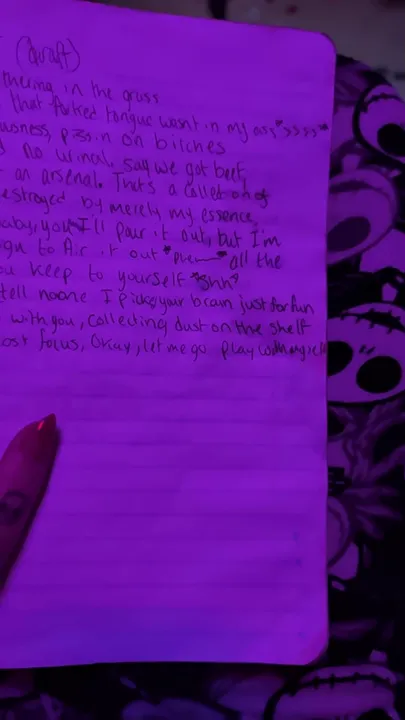 (draft)
thering in the grass
that forked tongue wasnt in my ass *ssss*
usness, p*ssin on bitches
No wincin, say we got beef,
an arsenal. Thats a collection of
estroyed by merely my essence,
baby, you I'll pour it out, but I'm
ign to Air it out all the
ou keep to yourself *shh*
tell noone I pick your brain just for fun
with you, collecting dust on the shelf
ost focus, Okay, let me go play with myself